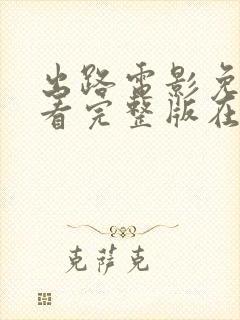 出路电影免
看完整版在
克萨克